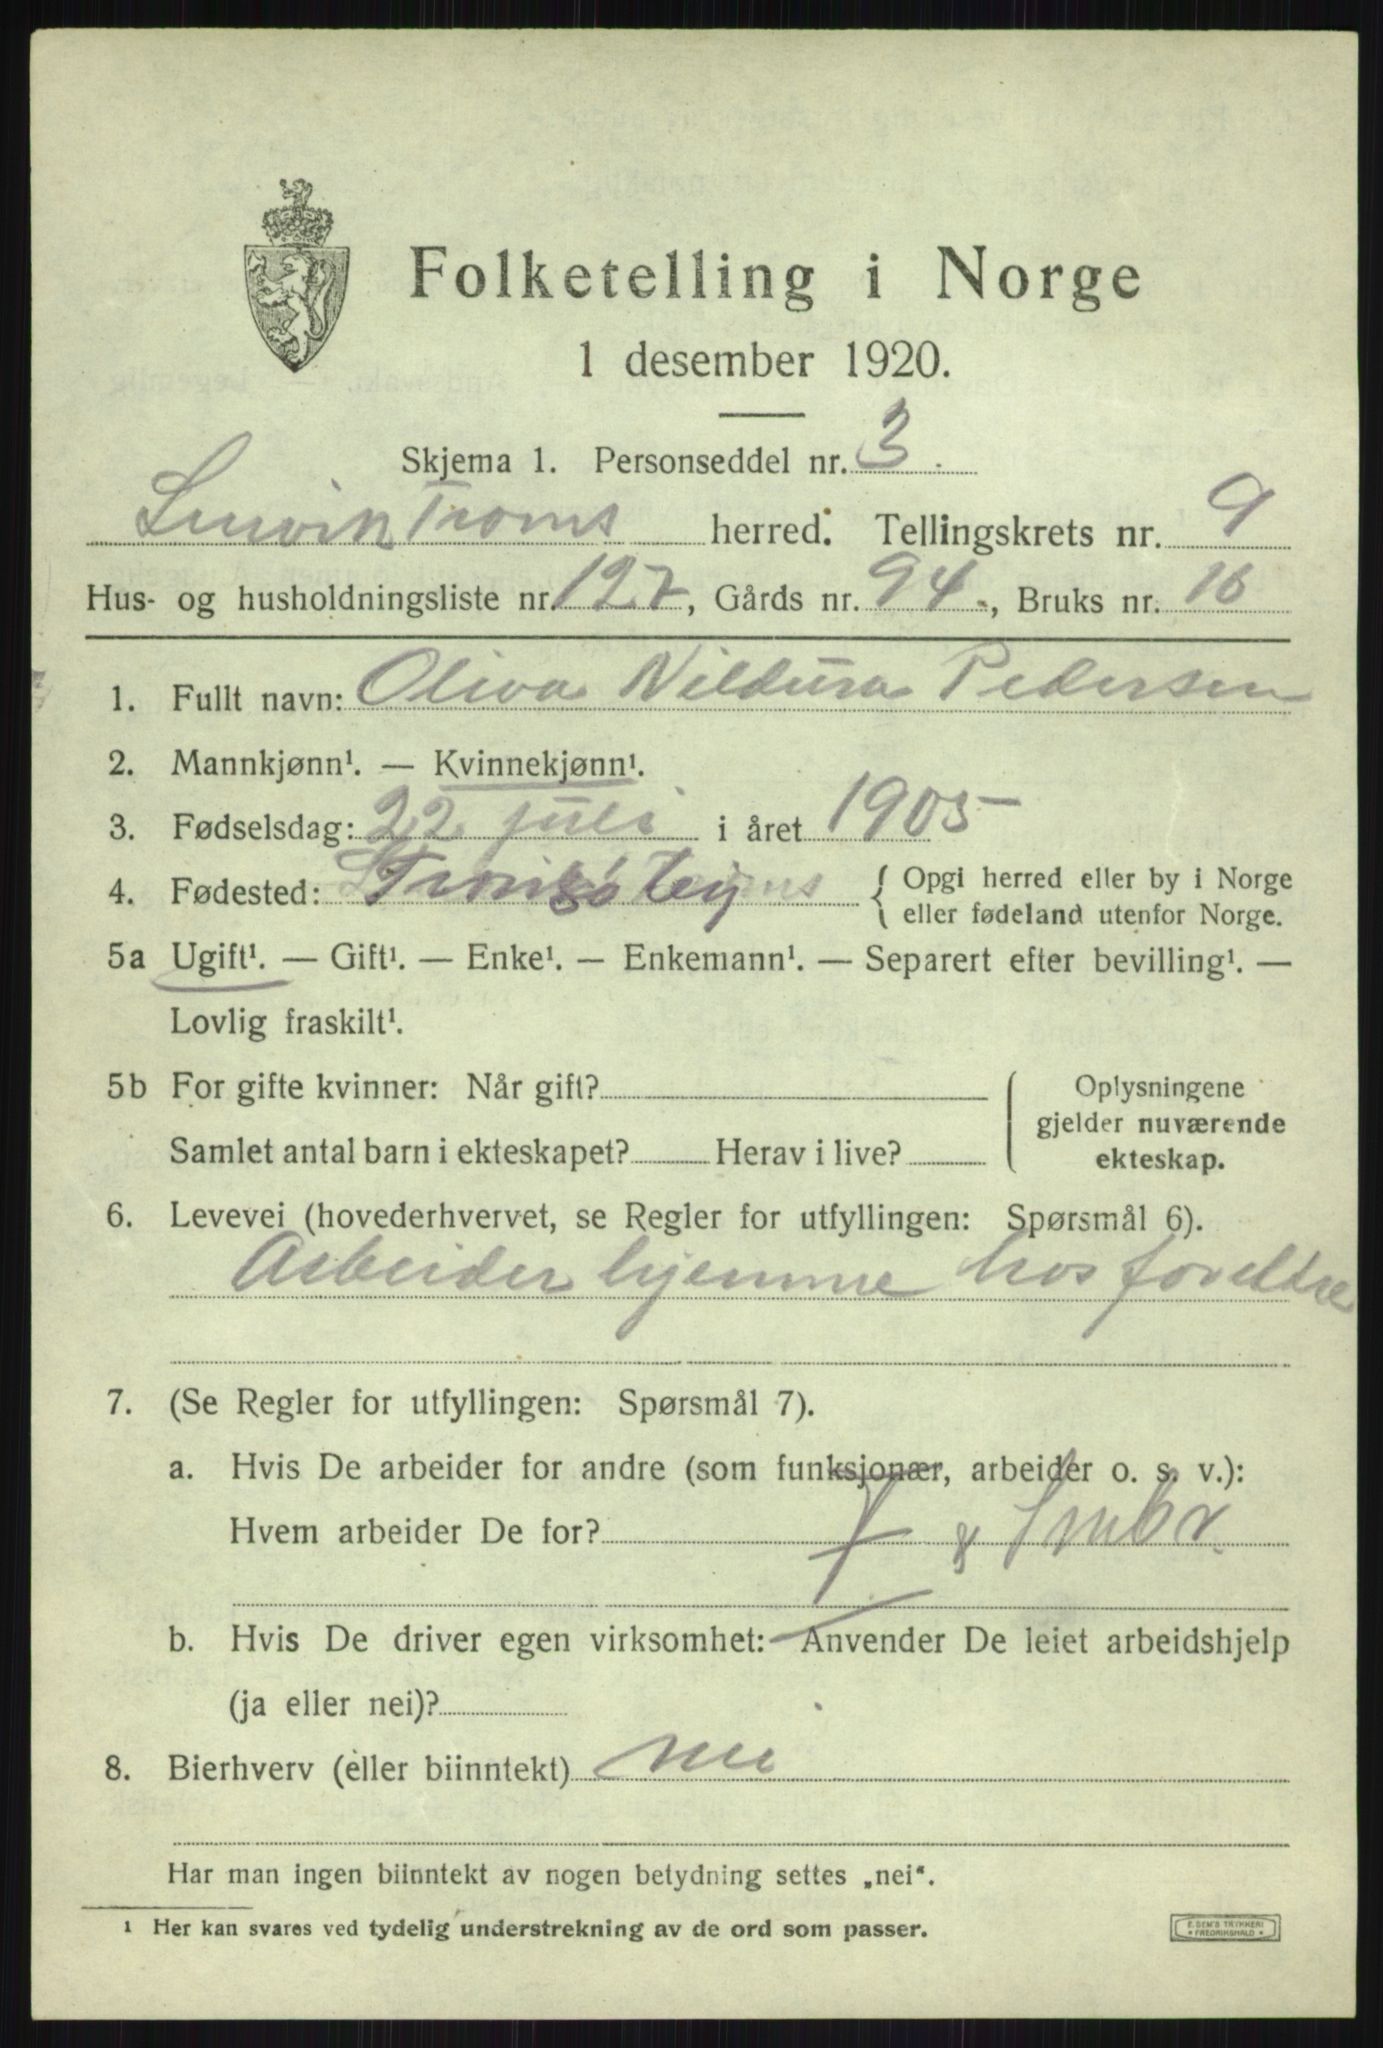 Folketelling i Norge
1 desember 1920.
Skjema 1. Personseddel nr. 3.
Lenvik Troms herred. Tellingskrets nr. 9
Hus- og husholdningsliste nr. 127, Gårds nr. 94., Bruks nr. 16
1. Fullt navn: Oliva Nildura Pedersen
2. Mannkjønn¹. — Kvinnekjønn¹.
3. Fødselsdag: 22 juli i året 1905
4. Fødested: Tromsø by { Opgi herred eller by i Norge
eller fødeland utenfor Norge.
5a Ugift¹. — Gift¹. — Enke¹. — Enkemann¹. — Separert efter bevilling¹. —
Lovlig fraskilt¹.
5b For gifte kvinner: Når gift? Oplysningene
gjelder nuværende
Samlet antal barn i ekteskapet? Herav i live? ekteskap.
6. Levevei (hovederhvervet, se Regler for utfyllingen: Spørsmål 6).
Arbeider hjemme hos foreldre
7. (Se Regler for utfyllingen: Spørsmål 7).
a. Hvis De arbeider for andre (som funksjonær, arbeider o. s. v.):
Hvem arbeider De for? F & Smbr.
b. Hvis De driver egen virksomhet: Anvender De leiet arbeidshjelp
(ja eller nei)?
8. Bierhverv (eller biinntekt) nei
Har man ingen biinntekt av nogen betydning settes „nei“.
¹ Her kan svares ved tydelig understrekning av de ord som passer.
E. SEM'S TRYKKERI
* FREDRIKSHALD *